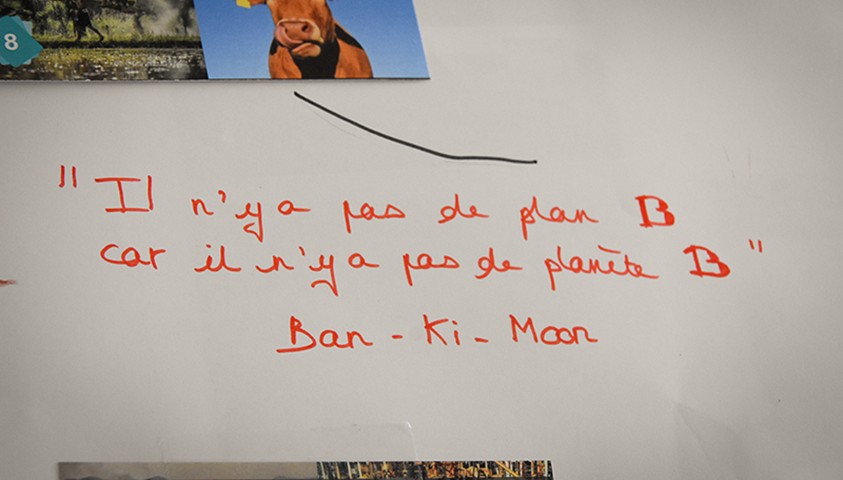 8
"Il n'y a pas de plan B
car il n'y a pas de planète B"
Ban-Ki-Moon